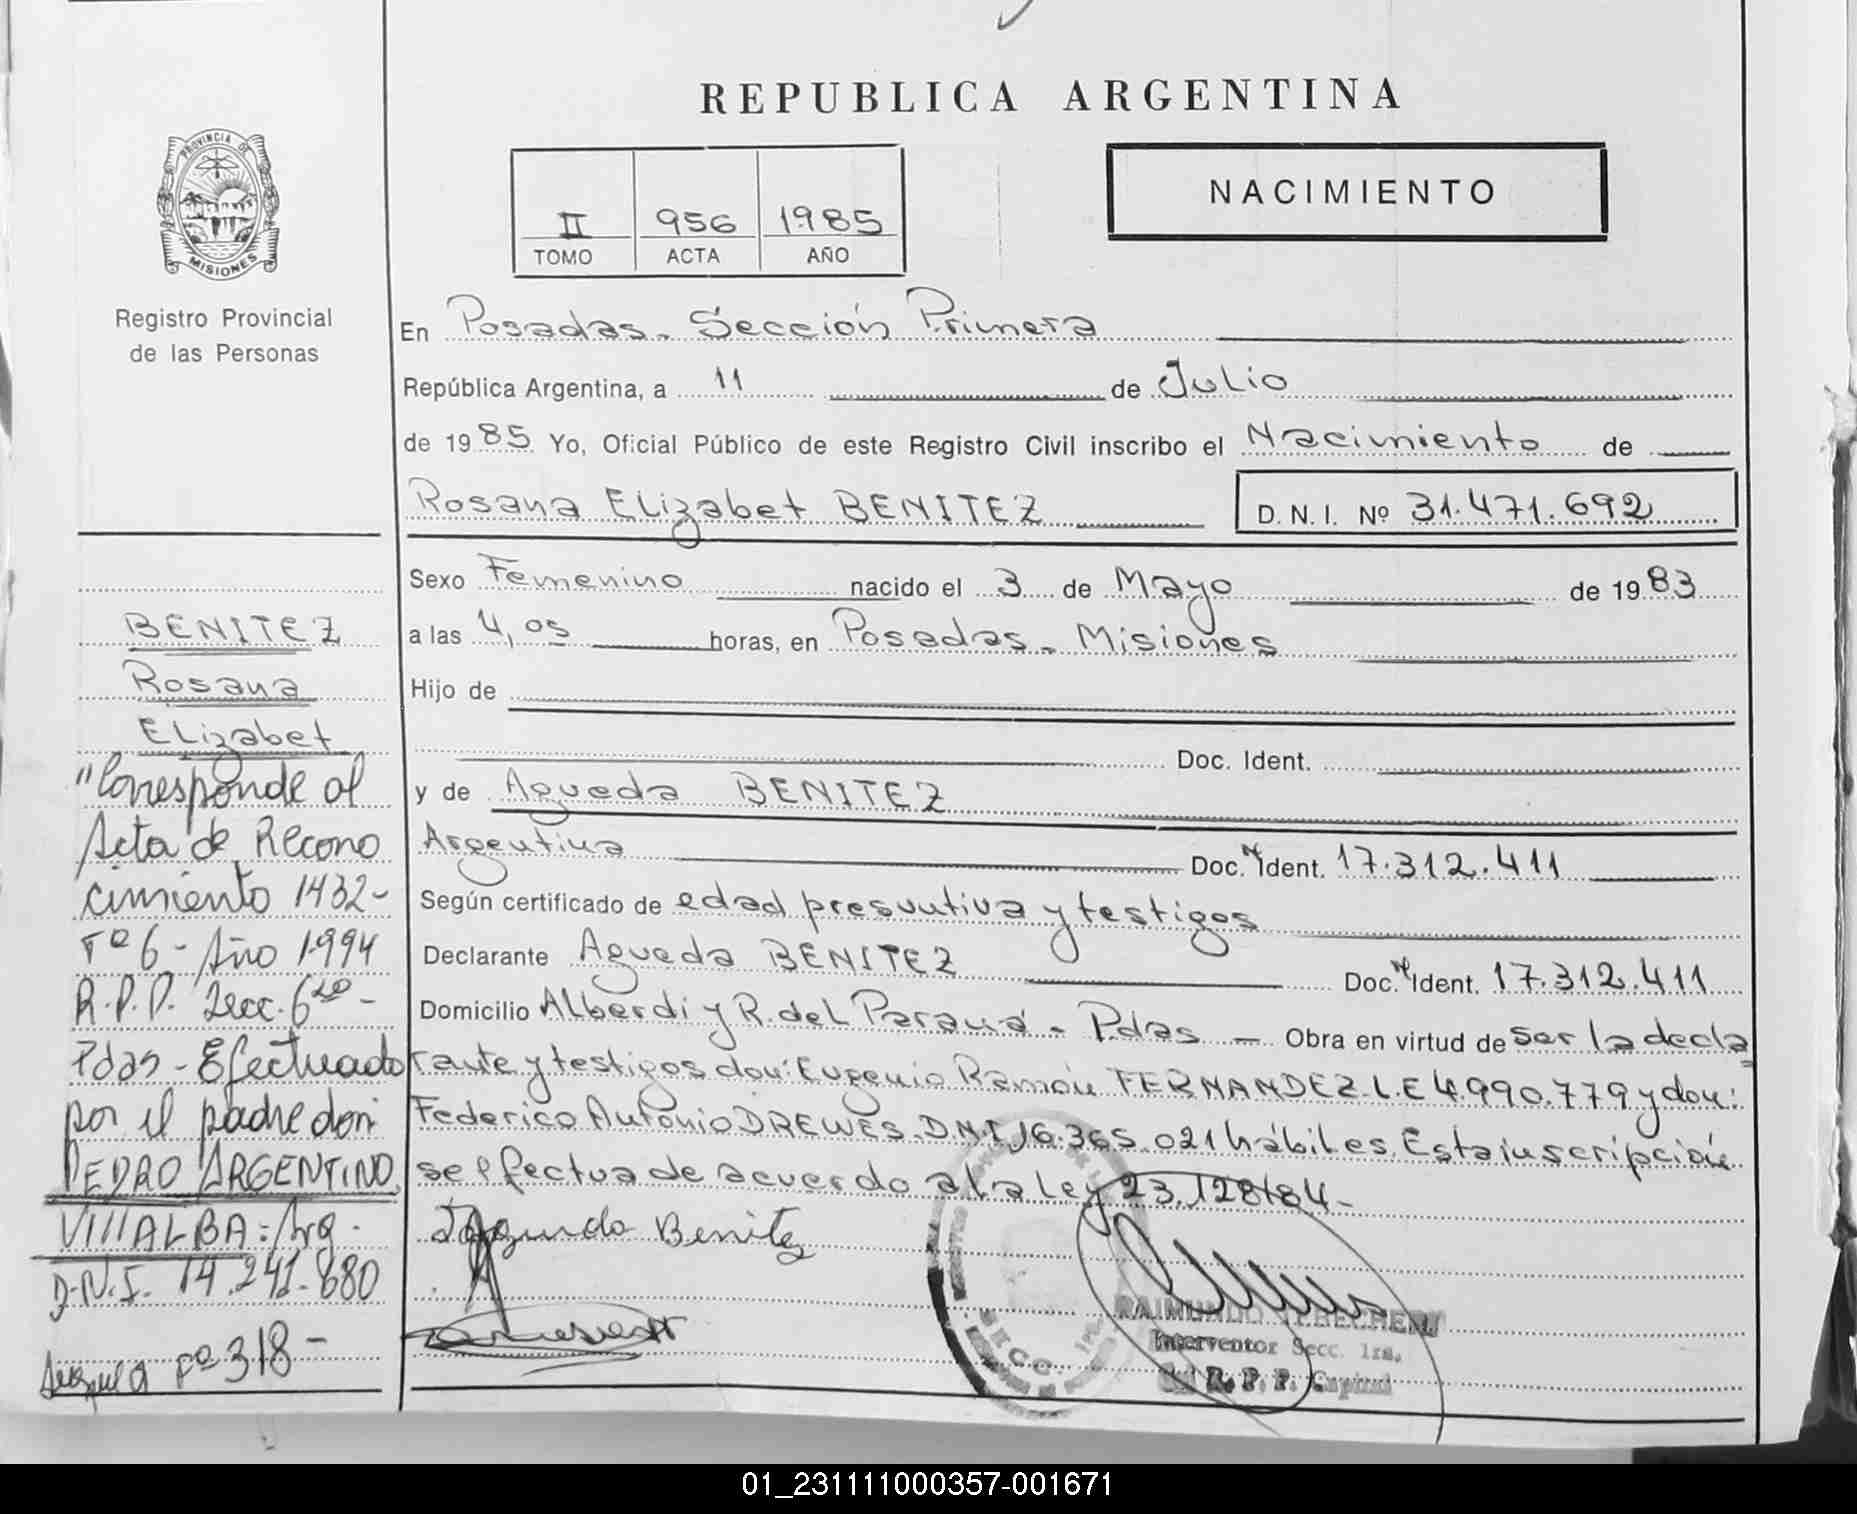 REPUBLICA ARGENTINA
PROVINCIA DE
MISIONES
Registro Provincial
de las Personas
II 956 1985
TOMO ACTA AÑO
NACIMIENTO
En Posadas. Sección Primera
República Argentina, a 11 de Julio
de 1985 Yo, Oficial Público de este Registro Civil inscribo el Nacimiento de
Rosana ELizabet BENITEZ D.N.I. Nº 31.471.692
Sexo Femenino nacido el 3 de Mayo de 1983
a las 4,05 horas, en Posadas. Misiones
Hijo de
Doc. Ident.
y de Agueda BENITEZ
Argentina Doc. Ident. 17.312.411
Según certificado de edad presuntiva y testigos
Declarante Agueda BENITEZ Doc. Ident. 17.312.411
Domicilio Alberdi y R. del Paraná - Pdas - Obra en virtud de ser la decla
rante y testigos don: Eugenio Ramón FERNANDEZ L.E 4.990.779 y don:
Federico Antonio DREWES. D.N.I 16.365.021 hábiles. Esta inscripción
se efectua de acuerdo a la Ley 23.128/84-
Benitez
RAIMUNDO
Interventor Secc. 1ra.
R. P. P. Capital
BENITEZ
Rosana
ELizabet
"Corresponde al
Acta de Recono
cimiento 1432-
Tº 6 - Año 1994
R.P.P. Secc. 6ta -
Pdas - Efectuado
por el padre don
PEDRO ARGENTINO
VIllALBA: Arg.
D.N.I. 14.241.680
Fº 318 -
01_231111000357-001671